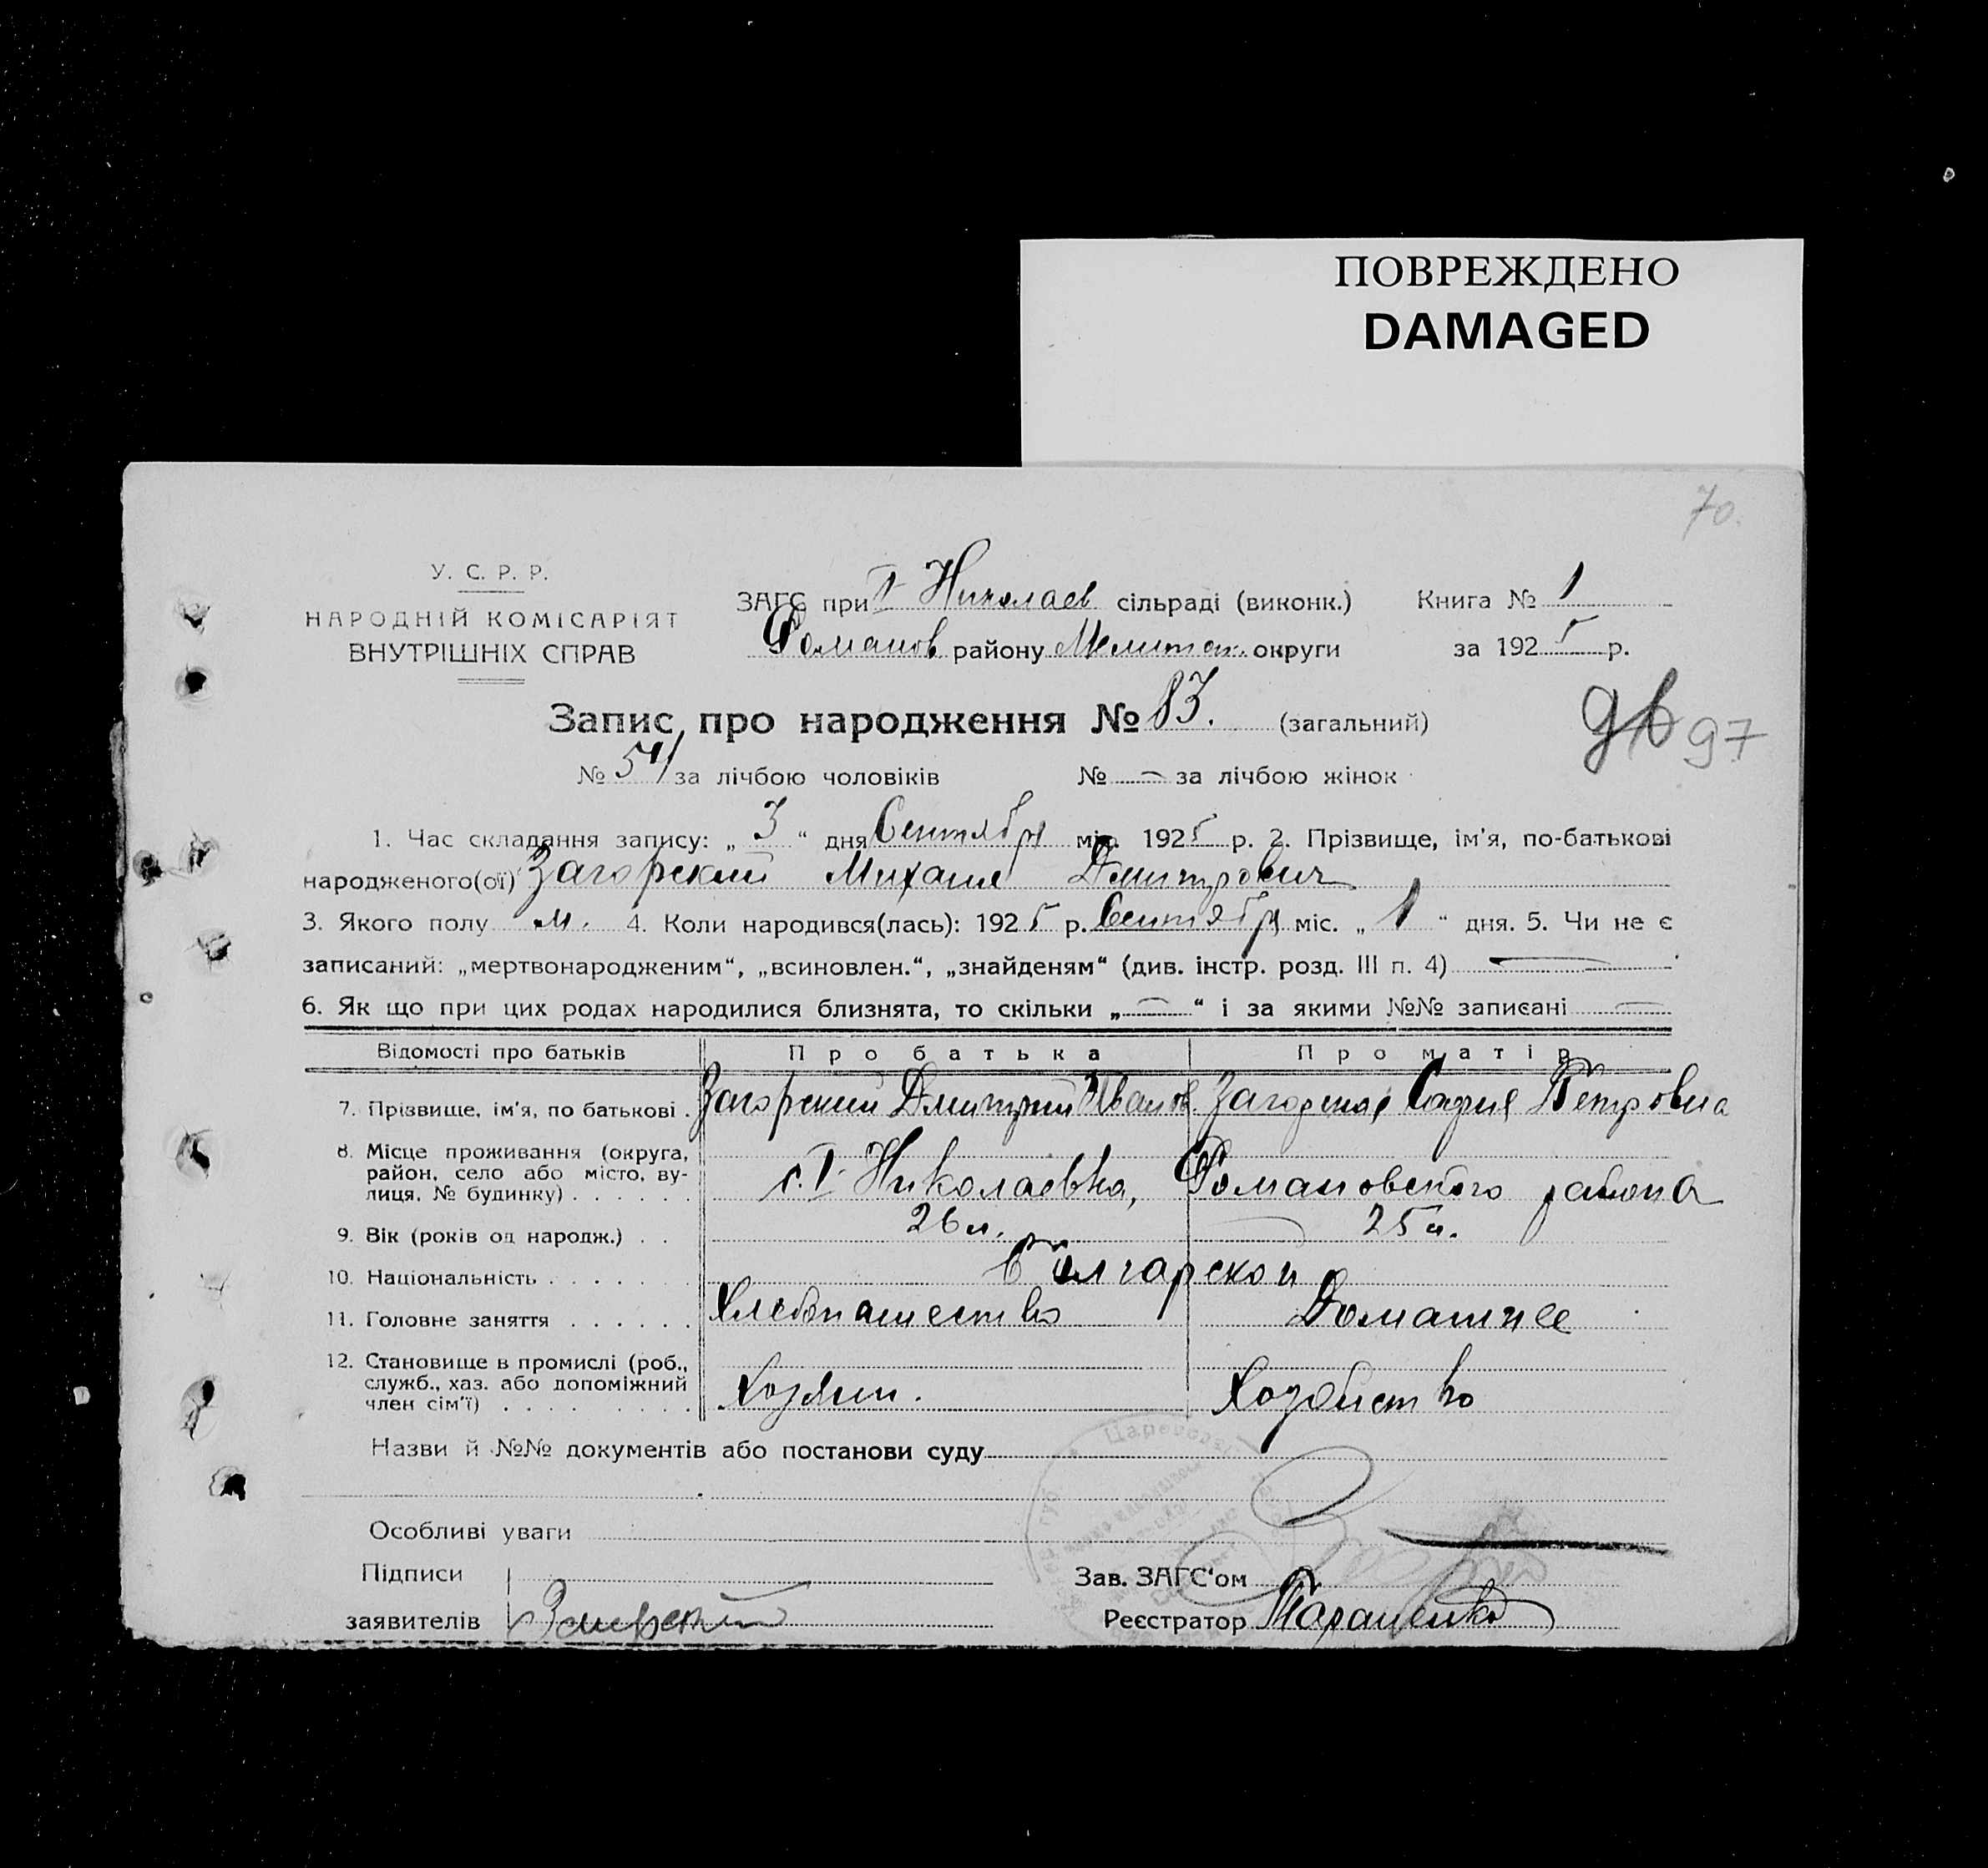 ПОВРЕЖДЕНО
DAMAGED
70.
У. С. Р. Р.
НАРОДНІЙ КОМІСАРІЯТ
ВНУТРІШНІХ СПРАВ
ЗАГС при I Николаев сільраді (виконк.) Книга № 1
Романов району Мелитоп. округи за 1925 р.
Запис про народження № 83. (загальний)
97
№ 54 за лічбою чоловіків № — за лічбою жінок
1. Час складання запису: „ 3 “ дня Сентября міс. 1925 р. 2. Прізвище, ім'я, по-батькові
народженого(ої) Загорский Михаил Дмитрович
3. Якого полу м. 4. Коли народився(лась): 1925 р. Сентября міс. „ 1 “ дня. 5. Чи не є
записаний: „мертвонародженим“, „всиновлен.“, „знайденям“ (див. інстр. розд. III п. 4) —
6. Як що при цих родах народилися близнята, то скільки „ — “ і за якими №№ записані —
Відомості про батьків Про батька Про матір
7. Прізвище, ім'я, по батькові . Загорский Дмитрий Иванов. Загорская София Петровна
8. Місце проживання (округа,
район, село або місто, ву-
лиця, № будинку) . . . . . . с. I Николаевка, Романовского района
9. Вік (років од народж.) . . 26 л. 25 л.
10. Національність . . . . . . . Болгарской
11. Головне заняття . . . . . . Хлебопашество Домашнее
12. Становище в промислі (роб.,
служб., хаз. або допоміжний
член сім'ї) . . . . . . . . . Хозяин. Хозяйство
Назви й №№ документів або постанови суду
Особливі уваги
Підписи Зав. ЗАГС'ом
заявителів Загорский Реєстратор Таращенко